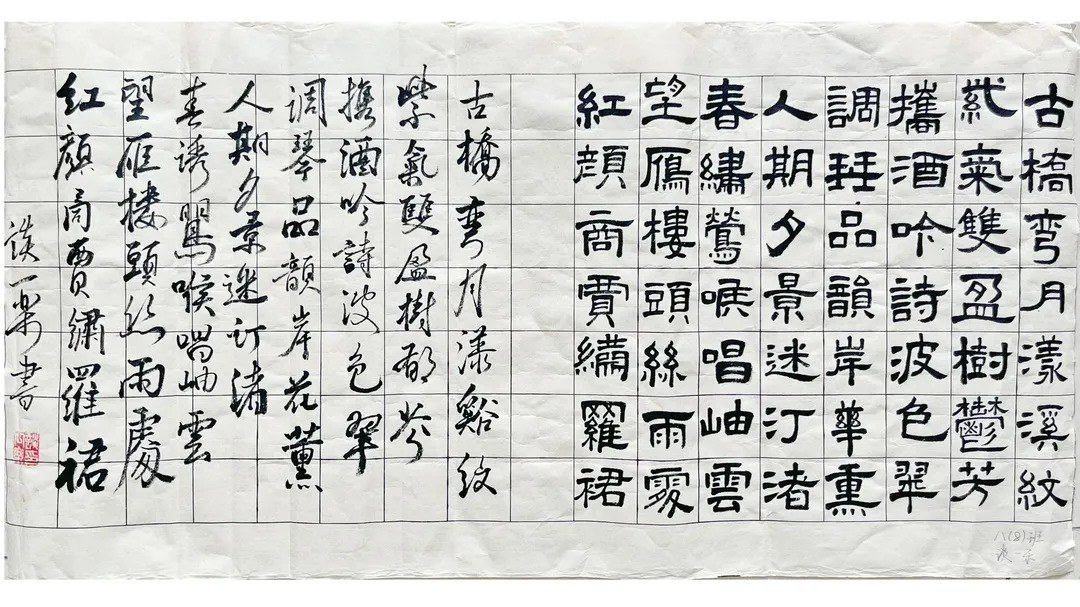 古橋彎月漾溪紋
紫氣雙盈樹鬱芳
攜酒吟詩波色翠
調琴品韻岸華熏
人期夕景迷汀渚
春繡鶯喉唱岫雲
望鴈樓頭絲雨處
紅顔商賈繡羅裙
古橋弯月漾谿紋
紫氣雙盈樹郁芬
携酒吟詩波色翠
调琴品韻岸花薰
人期夕景迷汀渚
春诱鶯喉唱岫雲
望雁樓頭絲雨處
红顔商賈繡羅裙
谈一樂書
八(8)班